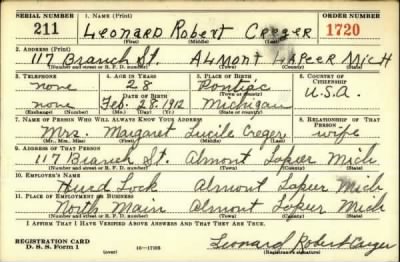 SERIAL NUMBER 1. NAME (Print) ORDER NUMBER
211 Leonard Robert Creger 1720
(First) (Middle) (Last)
2. ADDRESS (Print)
117 Branch St. Almont Lapeer Mich
(Number and street or R. F. D. number) (Town) (County) (State)
3. TELEPHONE 4. AGE IN YEARS 5. PLACE OF BIRTH 6. COUNTRY OF CITIZENSHIP
none 28 Pontiac U.S.A.
DATE OF BIRTH (Town or county)
none Feb. 28, 1912 Michigan
(Exchange) (Number) (Mo.) (Day) (Yr.) (State or country)
7. NAME OF PERSON WHO WILL ALWAYS KNOW YOUR ADDRESS 8. RELATIONSHIP OF THAT PERSON
Mrs. Margaret Lucile Creger wife
(Mr., Mrs., Miss) (First) (Middle) (Last)
9. ADDRESS OF THAT PERSON
117 Branch St. Almont Lapeer Mich
(Number and street or R. F. D. number) (Town) (County) (State)
10. EMPLOYER'S NAME
Hurd Lock Almont Lapeer Mich
11. PLACE OF EMPLOYMENT OR BUSINESS
North Main Almont Lapeer Mich
(Number and street or R. F. D. number) (Town) (County) (State)
I AFFIRM THAT I HAVE VERIFIED ABOVE ANSWERS AND THAT THEY ARE TRUE.
REGISTRATION CARD
D. S. S. Form 1 (over) Leonard Robert Creger
(Registrant's signature)